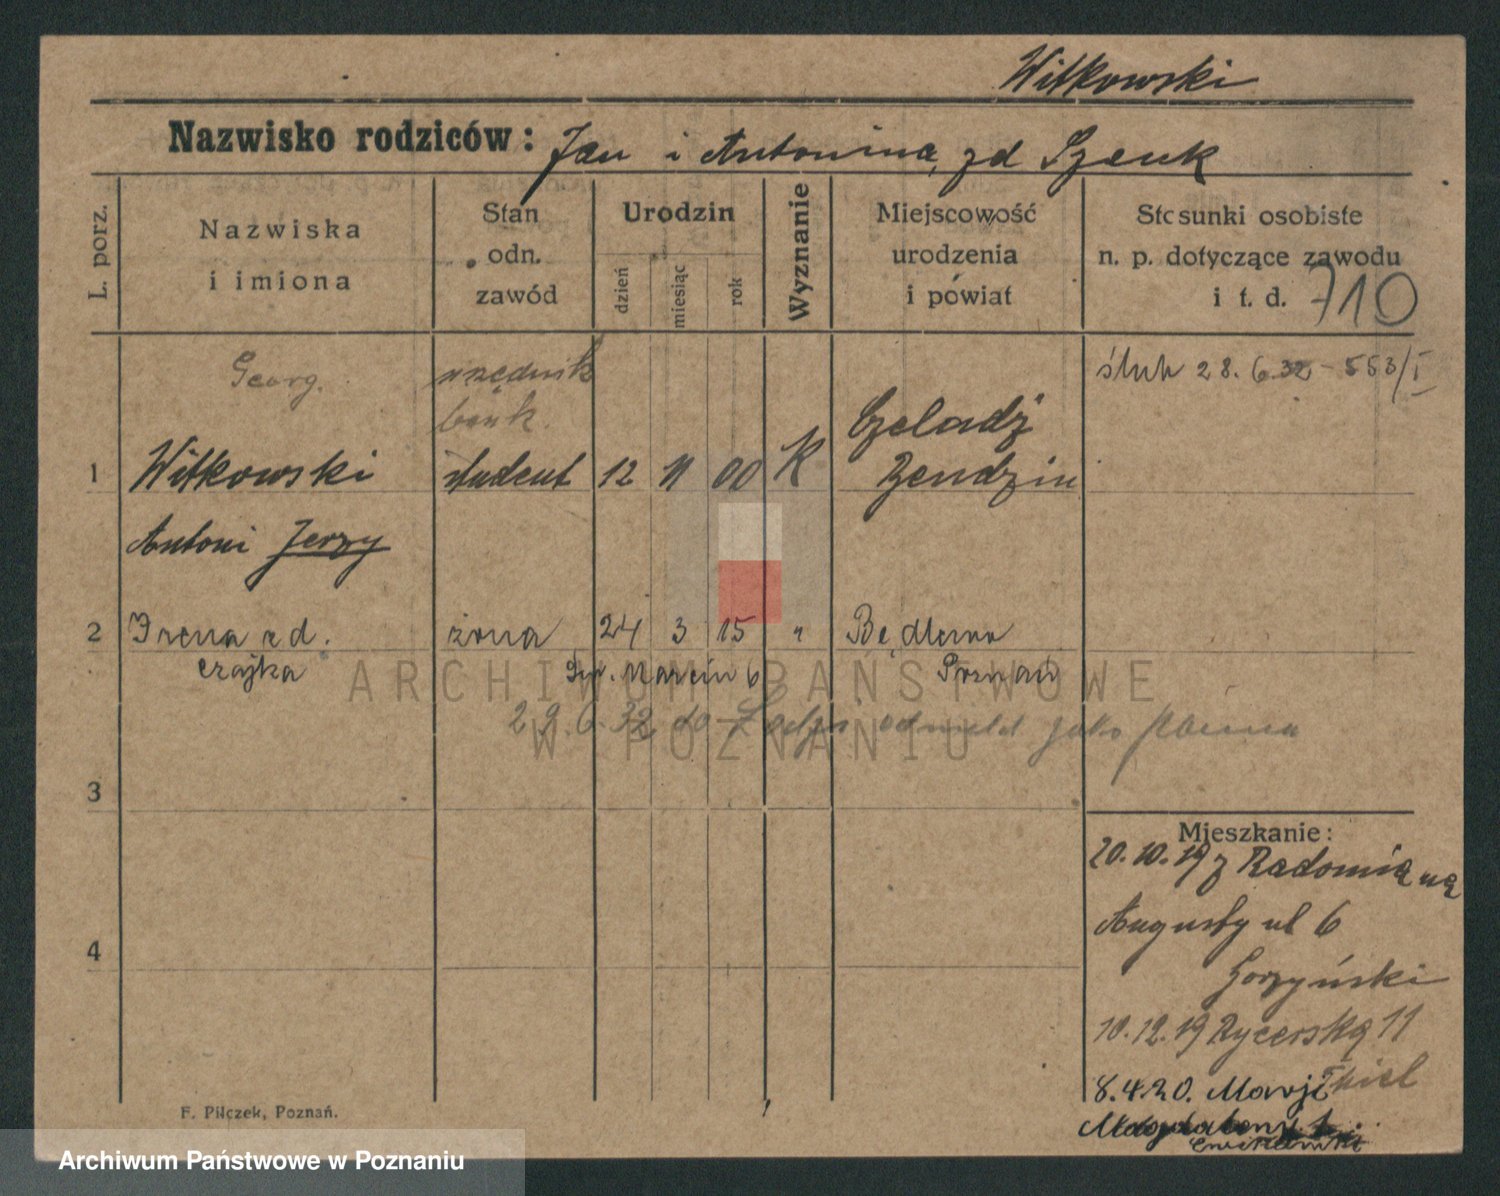 Witkowski
Nazwisko rodziców: Jan i Antonina, zd Szenk
L. porz.
Nazwiska i imiona
Stan odn. zawód
Urodzin
dzień miesiąc rok
Wyznanie
Miejscowość urodzenia i powiat
Stosunki osobiste n. p. dotyczące zawodu i t. d.
710
Georg. urzędnik bank.
ślub 28. 6.32 - 553/I
1 Witkowski student 12 11 00 K Czeladź Bendzin
Antoni Jerzy
2 Irena zd. żona 24 3 15 " Będlewo
Czajka Św. Marcin 6 Poznań
29.6.32 do Łodzi odmeld jako panna
3
4
Mieszkanie:
20.10.19 z Radomia na
Augusty ul 6
Gorzyński
10.12.19 Rycerska 11
Thiel
8.4.20. Marji
Magdaleny 1.
F. Pilczek, Poznań.
ARCHIWUM PAŃSTWOWE
W POZNANIU
Archiwum Państwowe w Poznaniu